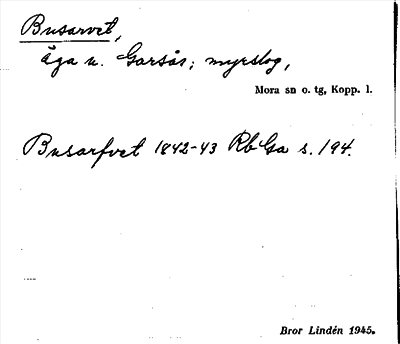 Busarvet,
äga u. Garsås; myrslog,
Mora sn o. tg, Kopp. l.
Busarfvet 1842-43 Rb Ga s. 194.
Bror Lindén 1945.